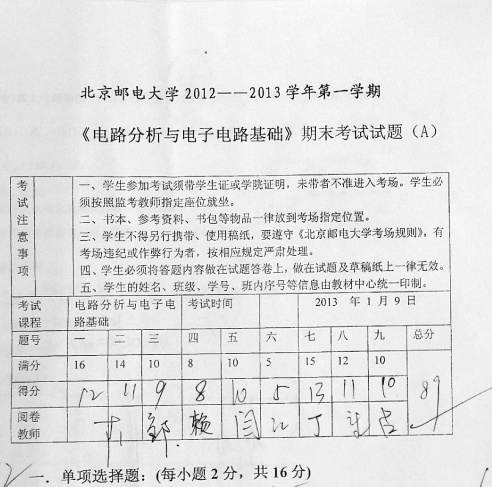 北京邮电大学 2012——2013 学年第一学期
《电路分析与电子电路基础》期末考试试题（A）
考试注意事项
一、学生参加考试须带学生证或学院证明，未带者不准进入考场。学生必
须按照监考教师指定座位就坐。
二、书本、参考资料、书包等物品一律放到考场指定位置。
三、学生不得另行携带、使用稿纸，要遵守《北京邮电大学考场规则》，有
考场违纪或作弊行为者，按相应规定严肃处理。
四、学生必须将答题内容做在试题答卷上，做在试题及草稿纸上一律无效。
五、学生的姓名、班级、学号、班内序号等信息由教材中心统一印制。
考试 电路分析与电子电 考试时间 2013 年 1 月 9 日
课程 路基础
题号 一 二 三 四 五 六 七 八 九 总分
满分 16 14 10 8 10 5 15 12 10
得分 12 11 9 8 10 5 13 11 10 89
阅卷 邹 赖 闫 江 丁
教师
一．单项选择题：(每小题 2 分，共 16 分)